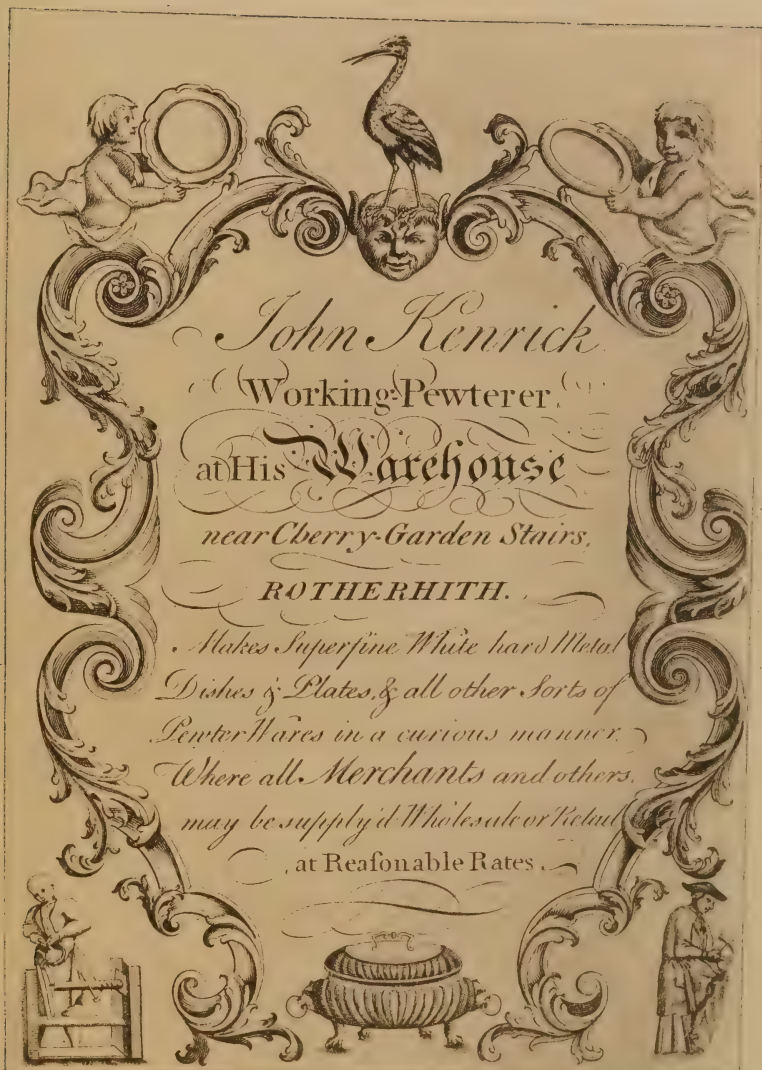 John Kenrick
Working Pewterer,
at His Warehouse
near Cherry-Garden Stairs,
ROTHERHITH.
Makes Superfine White hard Metal
Dishes & Plates, & all other Sorts of
Pewter Wares in a curious manner,
Where all Merchants and others,
may be supply'd Wholesale or Retail
at Reaſonable Rates.